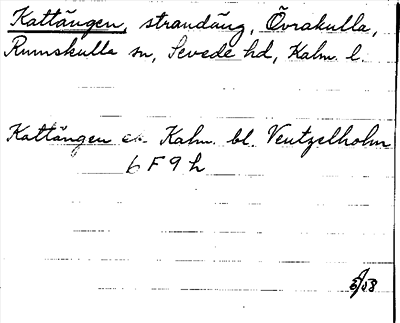 Kattängen, strandäng, Övrakulla,
Rumskulla sn, Sevede hd, Kalm. l.
Kattängen ek. Kalm. bl. Ventzelholm
6 F 9 h